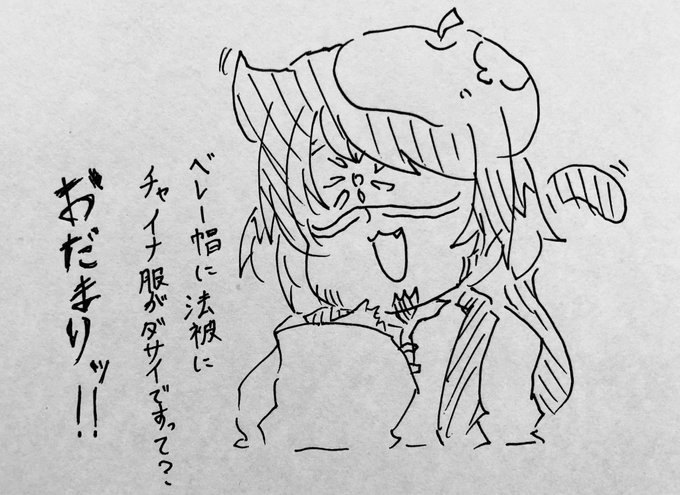 ベレー帽に法被に
チャイナ服がダサイですって?
おだまりッ!!